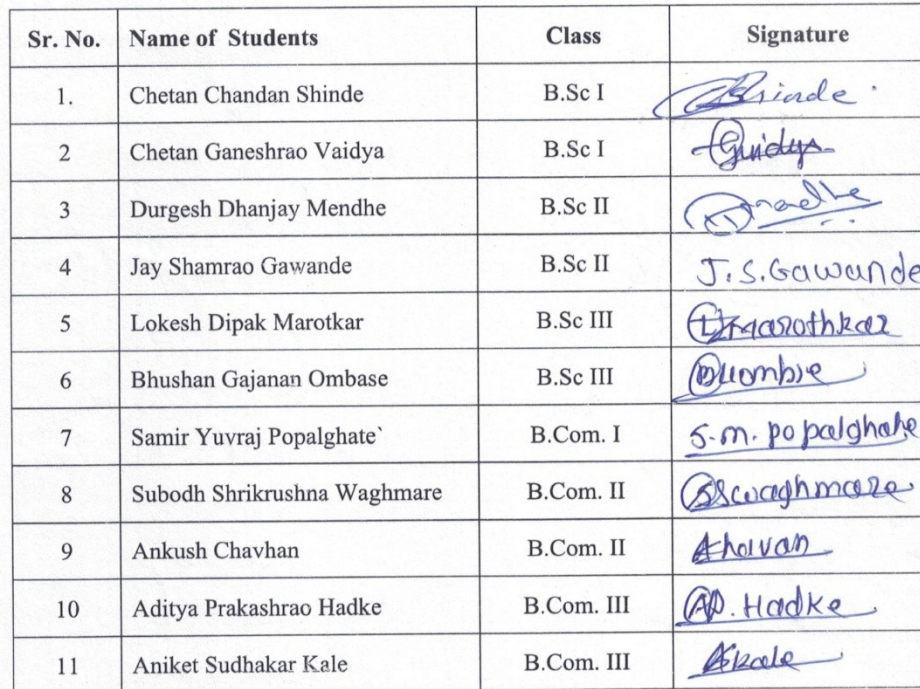 Sr. No. Name of Students Class Signature
1. Chetan Chandan Shinde B.Sc I Shinde
2 Chetan Ganeshrao Vaidya B.Sc I
3 Durgesh Dhanjay Mendhe B.Sc II
4 Jay Shamrao Gawande B.Sc II J.S.Gawande
5 Lokesh Dipak Marotkar B.Sc III Marothkar
6 Bhushan Gajanan Ombase B.Sc III
7 Samir Yuvraj Popalghate` B.Com. I S.m. popalghate
8 Subodh Shrikrushna Waghmare B.Com. II SSwaghmare
9 Ankush Chavhan B.Com. II
10 Aditya Prakashrao Hadke B.Com. III AP. Hadke
11 Aniket Sudhakar Kale B.Com. III Askale